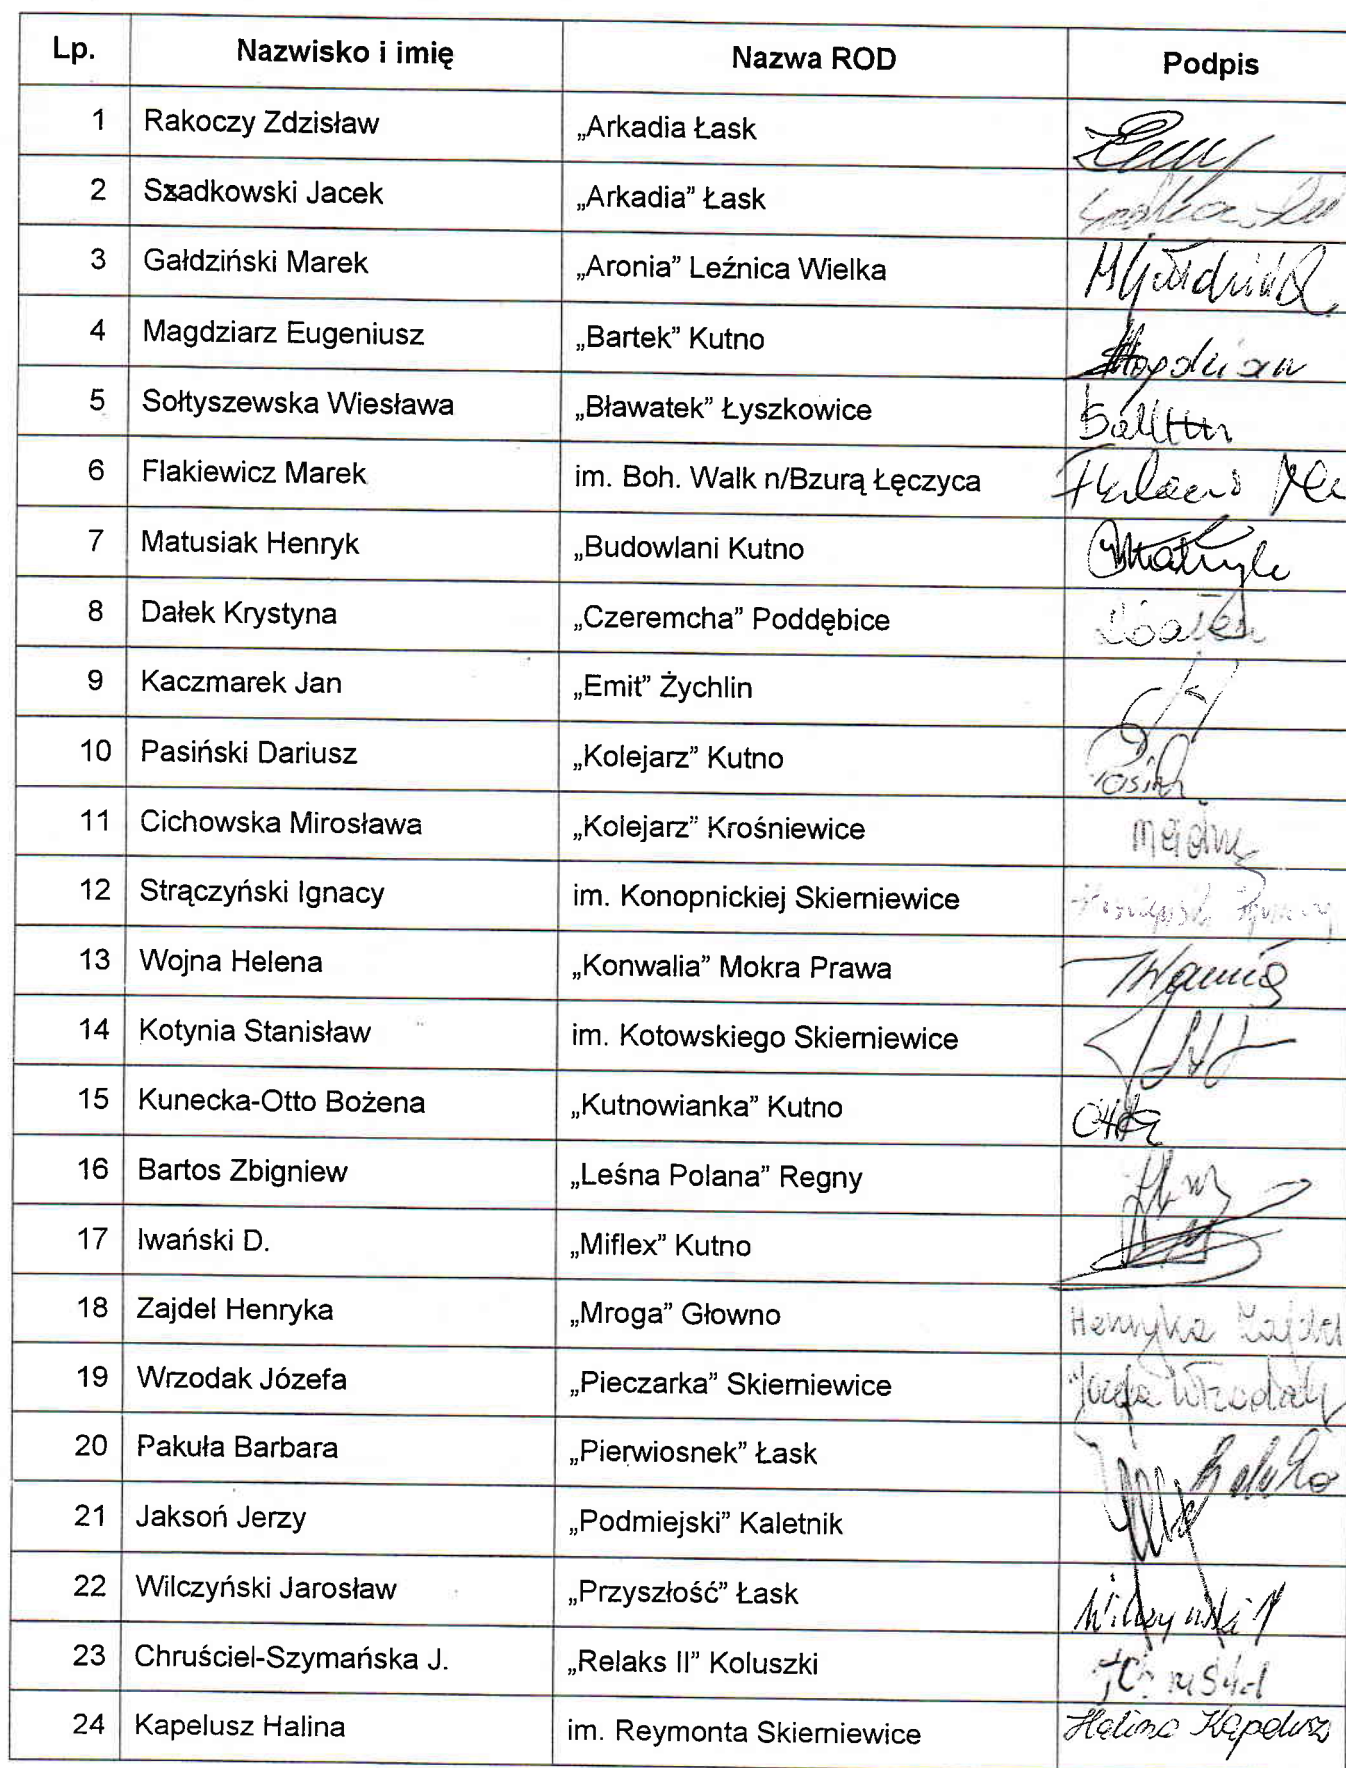 Lp. Nazwisko i imię Nazwa ROD Podpis
1 Rakoczy Zdzisław „Arkadia Łask
2 Szadkowski Jacek „Arkadia” Łask
3 Gałdziński Marek „Aronia” Leźnica Wielka
4 Magdziarz Eugeniusz „Bartek” Kutno
5 Sołtyszewska Wiesława „Bławatek” Łyszkowice
6 Flakiewicz Marek im. Boh. Walk n/Bzurą Łęczyca
7 Matusiak Henryk „Budowlani Kutno
8 Dałek Krystyna „Czeremcha” Poddębice
9 Kaczmarek Jan „Emit” Żychlin
10 Pasiński Dariusz „Kolejarz” Kutno
11 Cichowska Mirosława „Kolejarz” Krośniewice
12 Strączyński Ignacy im. Konopnickiej Skierniewice
13 Wojna Helena „Konwalia” Mokra Prawa
14 Kotynia Stanisław im. Kotowskiego Skierniewice
15 Kunecka-Otto Bożena „Kutnowianka” Kutno
16 Bartos Zbigniew „Leśna Polana” Regny
17 Iwański D. „Miflex” Kutno
18 Zajdel Henryka „Mroga” Głowno Henryka Zajdel
19 Wrzodak Józefa „Pieczarka” Skierniewice Józefa Wrzodak
20 Pakuła Barbara „Pierwiosnek” Łask
21 Jaksoń Jerzy „Podmiejski” Kaletnik
22 Wilczyński Jarosław „Przyszłość” Łask
23 Chruściel-Szymańska J. „Relaks II” Koluszki
24 Kapelusz Halina im. Reymonta Skierniewice Halina Kapelusz